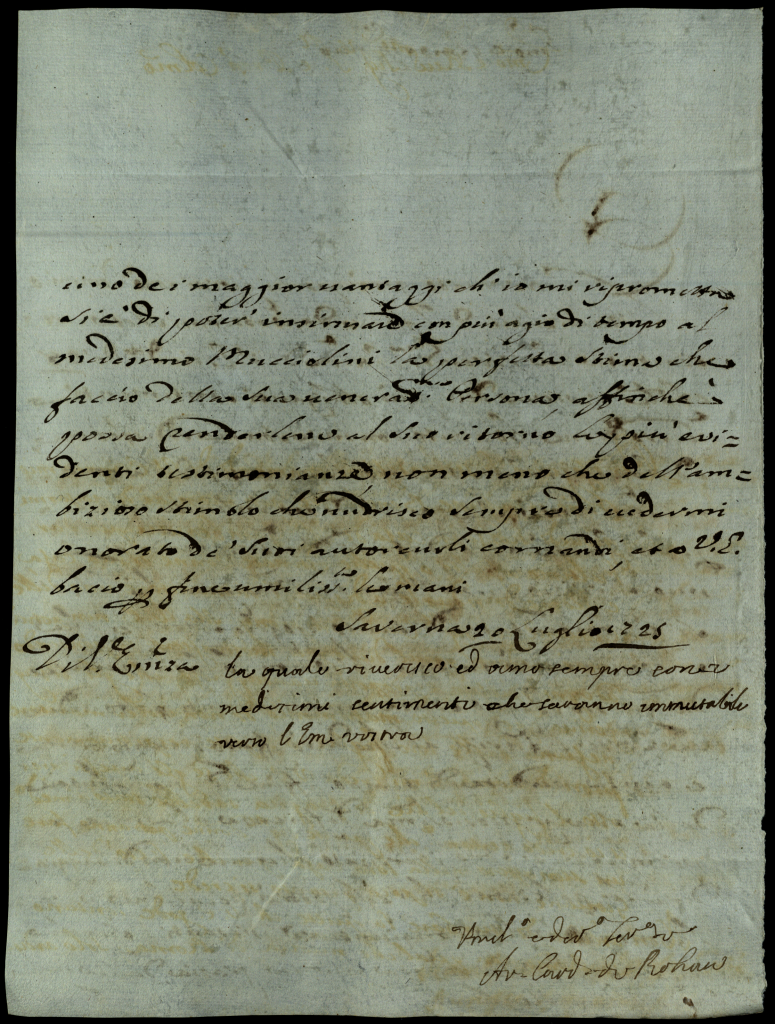 uno dei maggior vantaggi ch'io mi riprometto
si è di poter' insinuare con più agio di tempo al
medesimo Mucciolini la perfetta stima che
faccio della sua venerad.ma Persona, affinchè
possa renderlene al suo ritorno le più evi=
denti testimonianze, non meno che dell'am=
bizioso stimolo che nudrisco sempre di vedermi
onorato de' suoi autorevoli comandi, et a V.E.
bacio p fine umiliss.te le mani
Saverna 20 Luglio 1725
Di V. Em.za la quale riverisco ed amo sempre con ei
medesimi sentimenti che saranno immutabili
verso l'Em vostra
Umil.o e dev.o Ser.re
Ar. Card. de Rohan